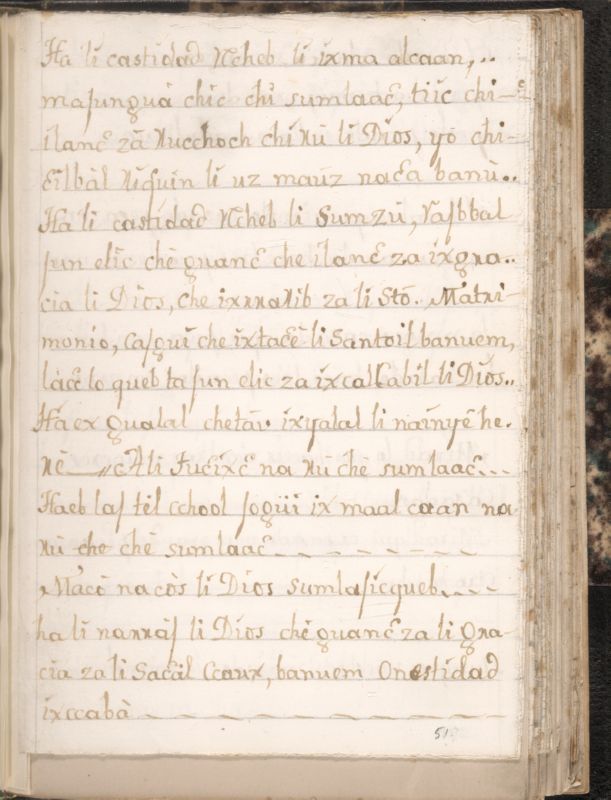 Ha li castidad Ncheb li ixma alcaan,..
maſunguà chic chi sumlaac̃, tiic chi-
ilanc̃ zã Nucchoch chi Nũ li Dios, yõ chi-
Eilbàl Niquin li uz mauz nac̃a banu..
Ha li castidad Ncheb li Sumzũ, Raſbbal
ſun elic chè guanc̃ che ilanc̃ za ixgra..
cia li Dios, che ixrraxib za li Stõ. Matri-
monio, Caſgui che ixtac̃è li Santoil banuem,
làc̃c̃ lo queb ta ſun elic za ixcallabil li Dios..
Ha ex gualal chetàu ixyalal li nainyê he.
Nè — cAli Juc̃ixc̃ na Nũ chè sumlaac̃...
Haeb laſ tel cchool ſogũi ix maal caan na
Nũ che chè sumlaac̃ - - - - - - -
Macò na còs li Dios sumlaſicqueb...
ha li narràſ li Dios chè guanc̃ za li gra-
cia za li Sac̃àl Ccaux, banuem Onestidad
ixccabà - - - - - - - - - - -